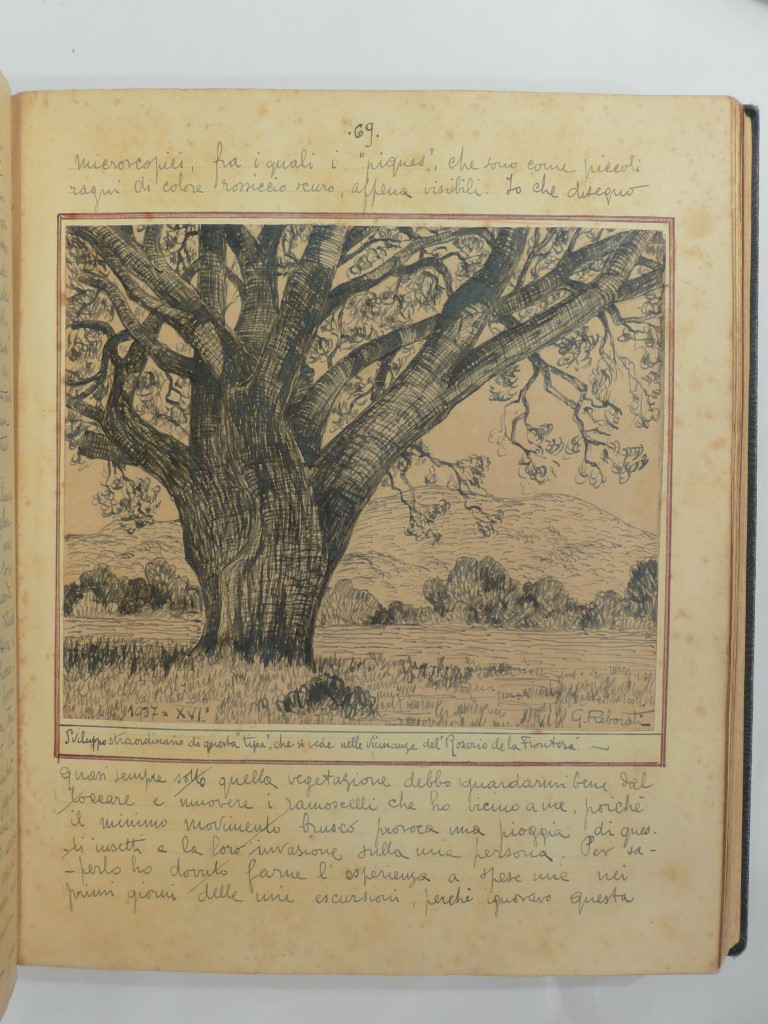 .69.
microscopici, fra i quali i "piques", che sono come piccoli
ragni di colore rossiccio scuro, appena visibili. Io che disegno
1937 = XVI°
G. Raborati
Sviluppo straordinario di questa "tipa", che si vede nelle vicinanze del Rosario de la Frontera
quasi sempre sotto quella vegetazione debbo guardarmi bene dal
toccare e muovere i ramoscelli che ho vicino a me, poichè
il minimo movimento brusco provoca una pioggia di ques-
-ti insetti e la loro invasione sulla mia persona. Per sa-
-perlo ho dovuto farne l'esperienza a spese mie nei
primi giorni delle mie escursioni, perchè ignoravo questa